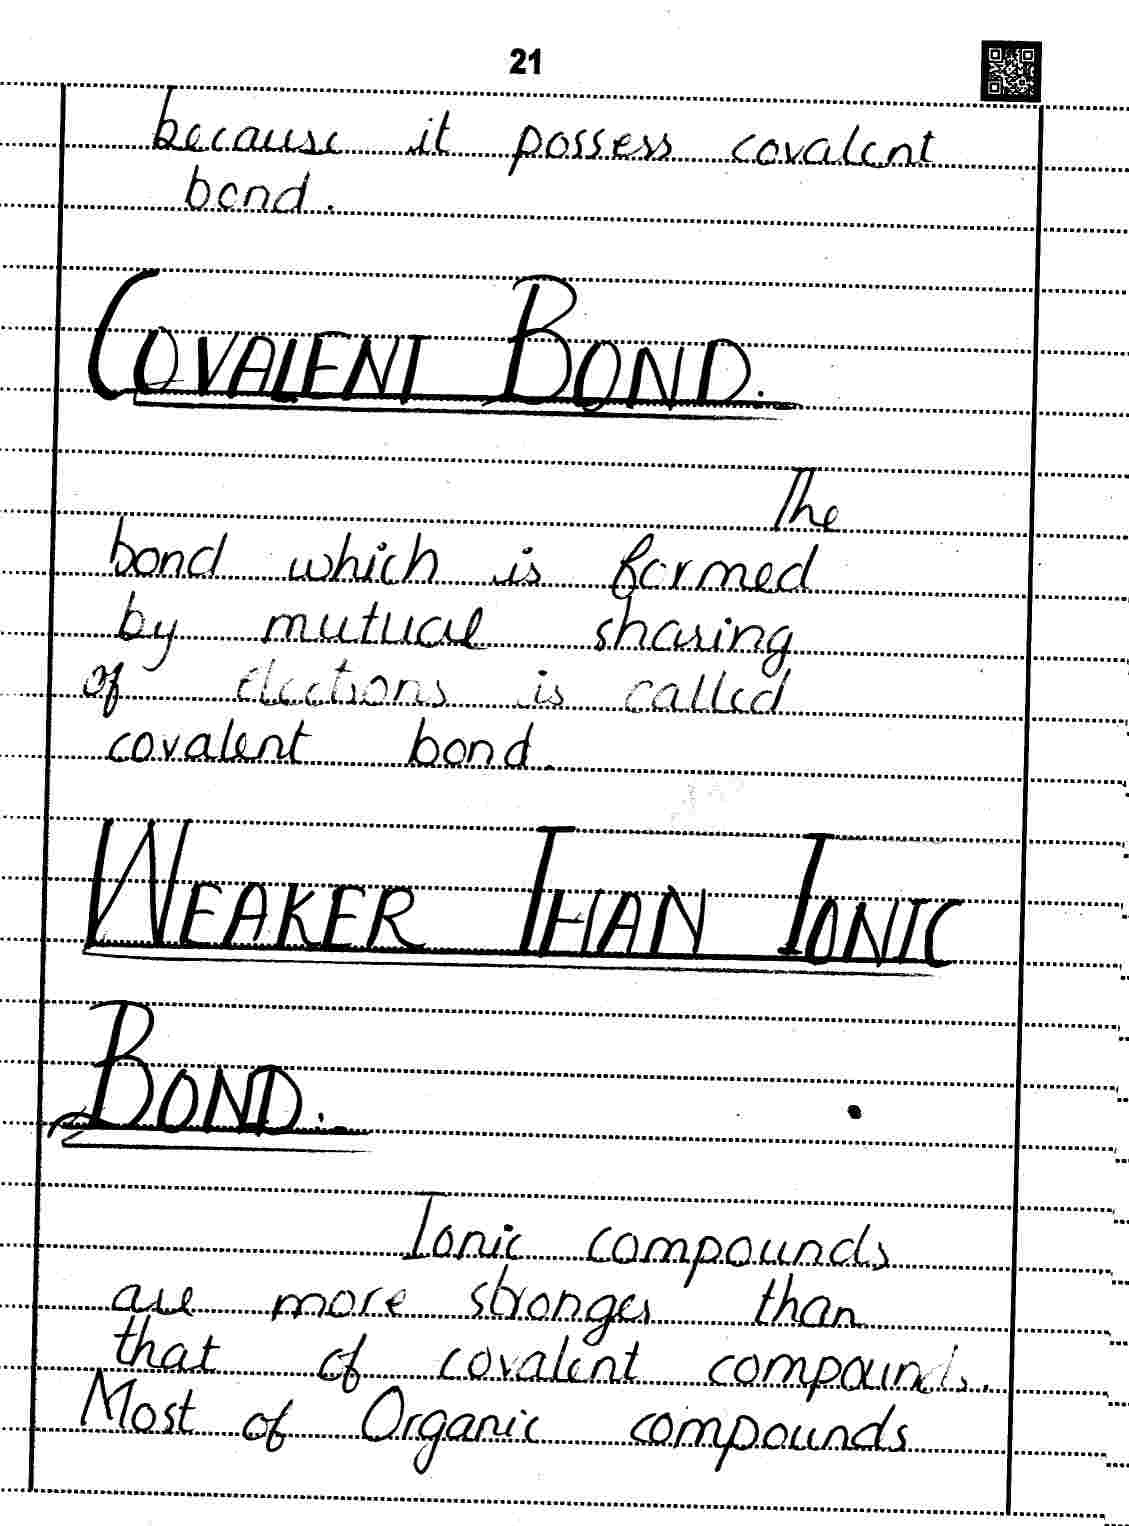 21
because it possess covalent
bond.
COVALENT BOND.
The
bond which is formed
by mutual sharing
of electrons is called
covalent bond.
WEAKER THAN IONIC
BOND.
Ionic compounds
are more stronger than
that of covalent compounds.
Most of Organic compounds